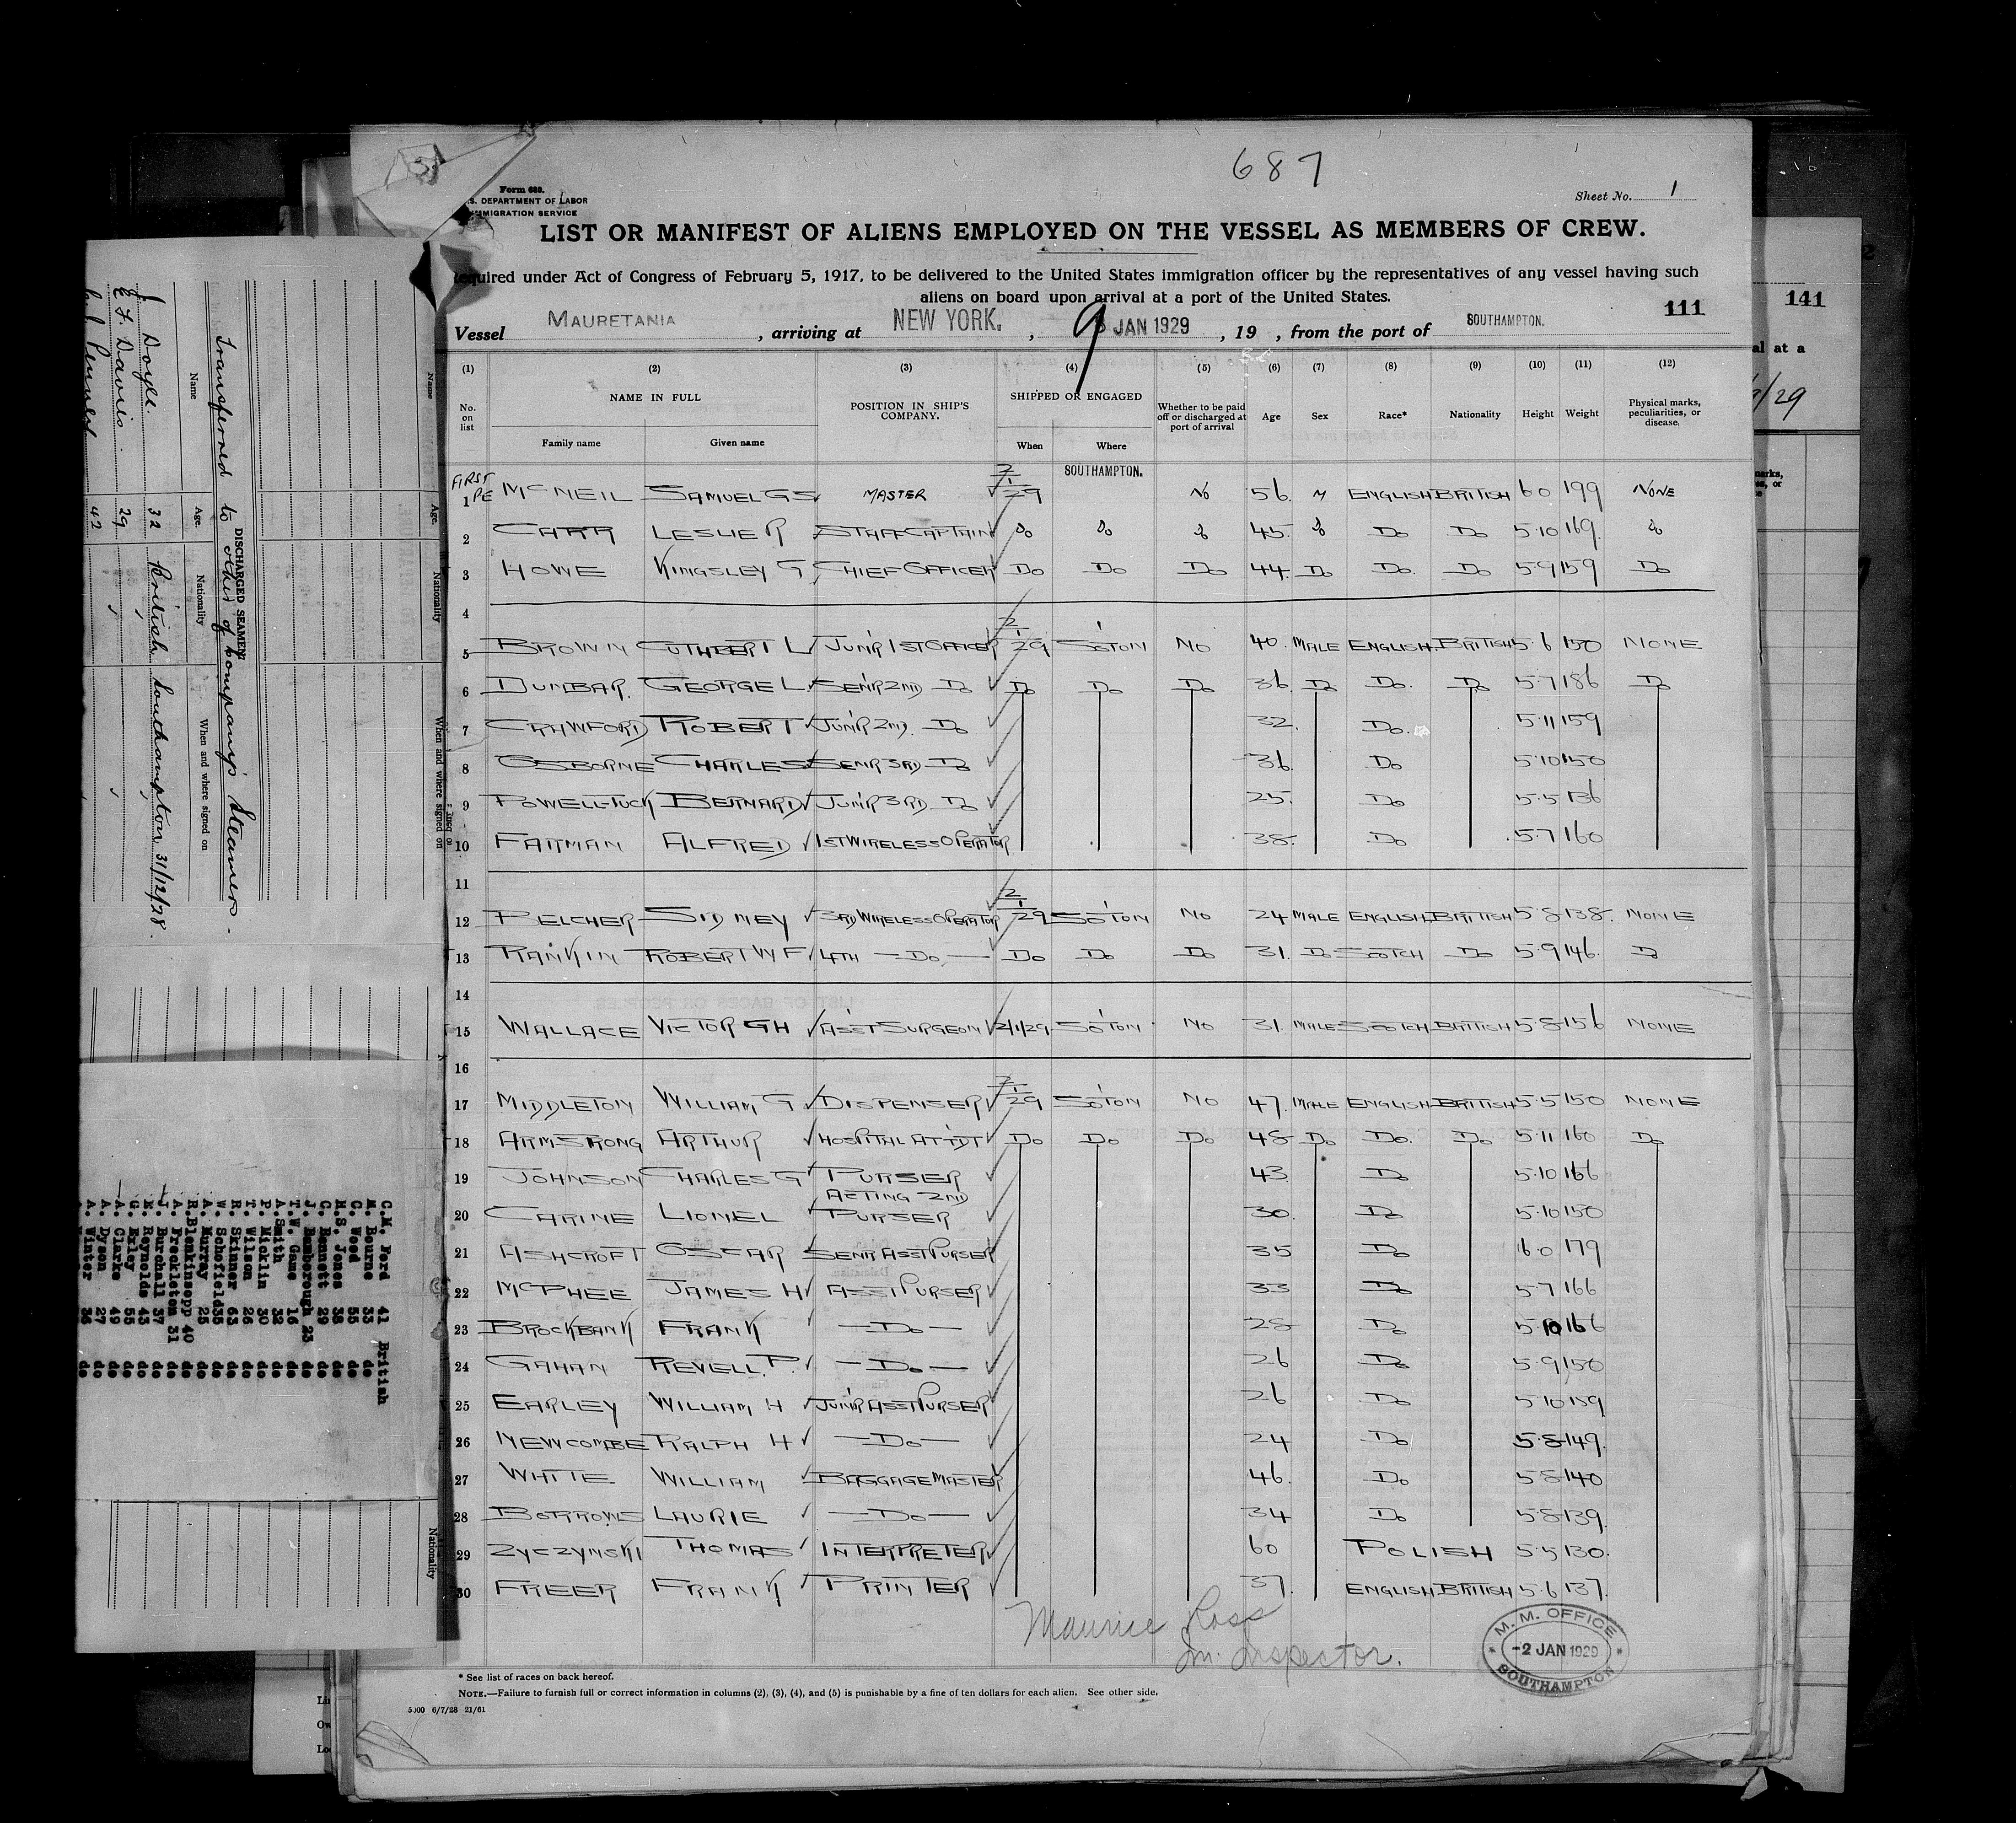 687
Form 680.
S. DEPARTMENT OF LABOR
IMMIGRATION SERVICE
Sheet No. 1
LIST OR MANIFEST OF ALIENS EMPLOYED ON THE VESSEL AS MEMBERS OF CREW.
equired under Act of Congress of February 5, 1917, to be delivered to the United States immigration officer by the representatives of any vessel having such
aliens on board upon arrival at a port of the United States.
111
Vessel MAURETANIA, arriving at NEW YORK., 9 JAN 1929, 19 , from the port of SOUTHAMPTON.
(1) (2) (3) (4) (5) (6) (7) (8) (9) (10) (11) (12)
No. on list NAME IN FULL Family name Given name POSITION IN SHIP'S COMPANY. SHIPPED OR ENGAGED When Where Whether to be paid off or discharged at port of arrival Age Sex Race* Nationality Height Weight Physical marks, peculiarities, or disease.
1 McNEIL SAMUEL GS MASTER 2/1/29 SOUTHAMPTON. NO 56 M ENGLISH BRITISH 6 0 199 NONE
2 CARR LESLIE R STAFF CAPTAIN Do Do Do 45 Do Do Do 5·10 169 Do
3 HOWE KINGSLEY G CHIEF OFFICER Do Do Do 44 Do Do Do 5·9 159 Do
4
5 BROWN CUTHBERT L JUN'R 1ST OFFICER 2/1/29 SO'TON NO 40 MALE ENGLISH BRITISH 5·6 150 NONE
6 DUNBAR GEORGE L. SEN'R 2ND Do Do Do Do 36 Do Do Do 5·7 186 Do
7 CRAWFORD ROBERT JUN'R 2ND Do 32 Do 5·11 159
8 OSBORNE CHARLES SEN'R 3RD Do 36 Do 5·10 150
9 POWELL-TUCK BERNARD JUN'R 3RD Do 25 Do 5·5 136
10 FAIRMAN ALFRED 1ST WIRELESS OPERATOR 38 Do 5·7 160
11
12 BELCHER SIDNEY 3RD WIRELESS OPERATOR 2/1/29 SO'TON NO 24 MALE ENGLISH BRITISH 5·8 138 NONE
13 RANKIN ROBERT W F 4TH — Do — Do Do Do 31 Do SCOTCH Do 5·9 146 Do
14
15 WALLACE VICTOR GH ASS'T SURGEON 2/1/29 SO'TON NO 31 MALE SCOTCH BRITISH 5·8 156 NONE
16
17 MIDDLETON WILLIAM G DISPENSER 2/1/29 SO'TON NO 47 MALE ENGLISH BRITISH 5·5 150 NONE
18 ARMSTRONG ARTHUR HOSPITAL ATTDT Do Do Do 48 Do Do Do 5·11 160 Do
19 JOHNSON CHARLES G PURSER 43 Do 5·10 166
20 CARINE LIONEL ACTING 2ND PURSER 30 Do 5·10 150
21 ASHCROFT OSCAR SEN'R ASST PURSER 35 Do 6·0 179
22 McPHEE JAMES H ASST PURSER 33 Do 5·7 166
23 BROCKBANK FRANK — Do — 28 Do 5·10 166
24 GAHAN REVELL. P. — Do — 26 Do 5·9 150
25 EARLEY WILLIAM H JUN'R ASST PURSER 26 Do 5·10 159
26 NEWCOMBE RALPH H — Do — 24 Do 5·8 149
27 WHITE WILLIAM BAGGAGE MASTER 46 Do 5·8 140
28 BORROWS LAURIE — Do — 34 Do 5·8 139
29 ZYCZYNSKI THOMAS INTERPRETER 60 POLISH 5·5 130
30 FREER FRANK PRINTER 37 ENGLISH BRITISH 5·6 137
Maurice Ross
Im. Inspector.
M.M. OFFICE
-2 JAN 1929
SOUTHAMPTON
* See list of races on back hereof.
NOTE.—Failure to furnish full or correct information in columns (2), (3), (4), and (5) is punishable by a fine of ten dollars for each alien. See other side.
6/7/28 21/61
DISCHARGED SEAMEN:
Transferred to other of Company's Steamers.
Name Age. Nationality When and where signed on
J Doyle. 32 British Southampton 31/12/28.
E F. Davies 29
42
C.M. Ford 41 British
M. Bourne 33 do
C. Wood 55 do
H.S. Jones 38 do
C. Bennett 29 do
J. Bamborough 23 do
T.W. Game 16 do
A. Smith 32 do
P. Micklin 30 do
T. Wilson 26 do
R. Skinner 63 do
W. Schofield 35 do
A. Murray 25 do
R. Blenkinsopp 40 do
A. Freckleton 31 do
J. Burchall 37 do
E. Reynolds 43 do
G. Exley 55 do
A. Clarke 49 do
A. Dyson 27 do
A. Winter 36 do
Nationality
141
al at a